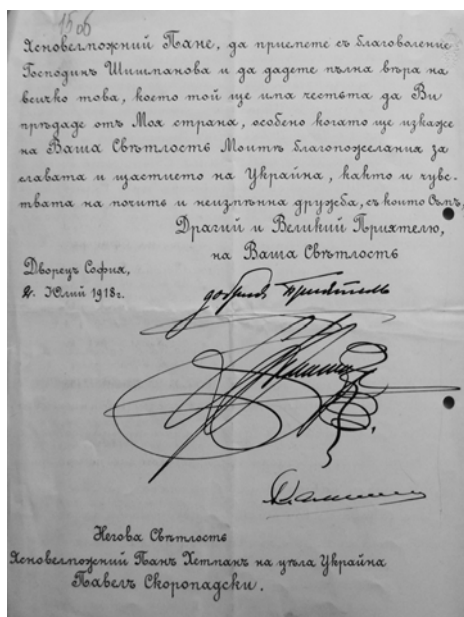 15 об
Ясновелможний Пане, да приемете съ благоволение
Господинъ Шишманова и да дадете пълна вѣра на
всичко това, което той ще има честьта да Ви
прѣдаде отъ Моя страна, особено когато ще изкаже
на Ваша Свѣтлость Моитѣ благопожелания за
славата и щастието на Украйна, както и чувс-
твата на почить и неизмѣнна дружба, съ които Съмъ,
Драгий и Великий Приятелю,
на Ваша Свѣтлость
Дворецъ София,
2. Юлий 1918г.
добрий Приятель
Негова Свѣтлость
Ясновелможений Панъ Хетманъ на цѣла Украйна
Павелъ Скоропадски.